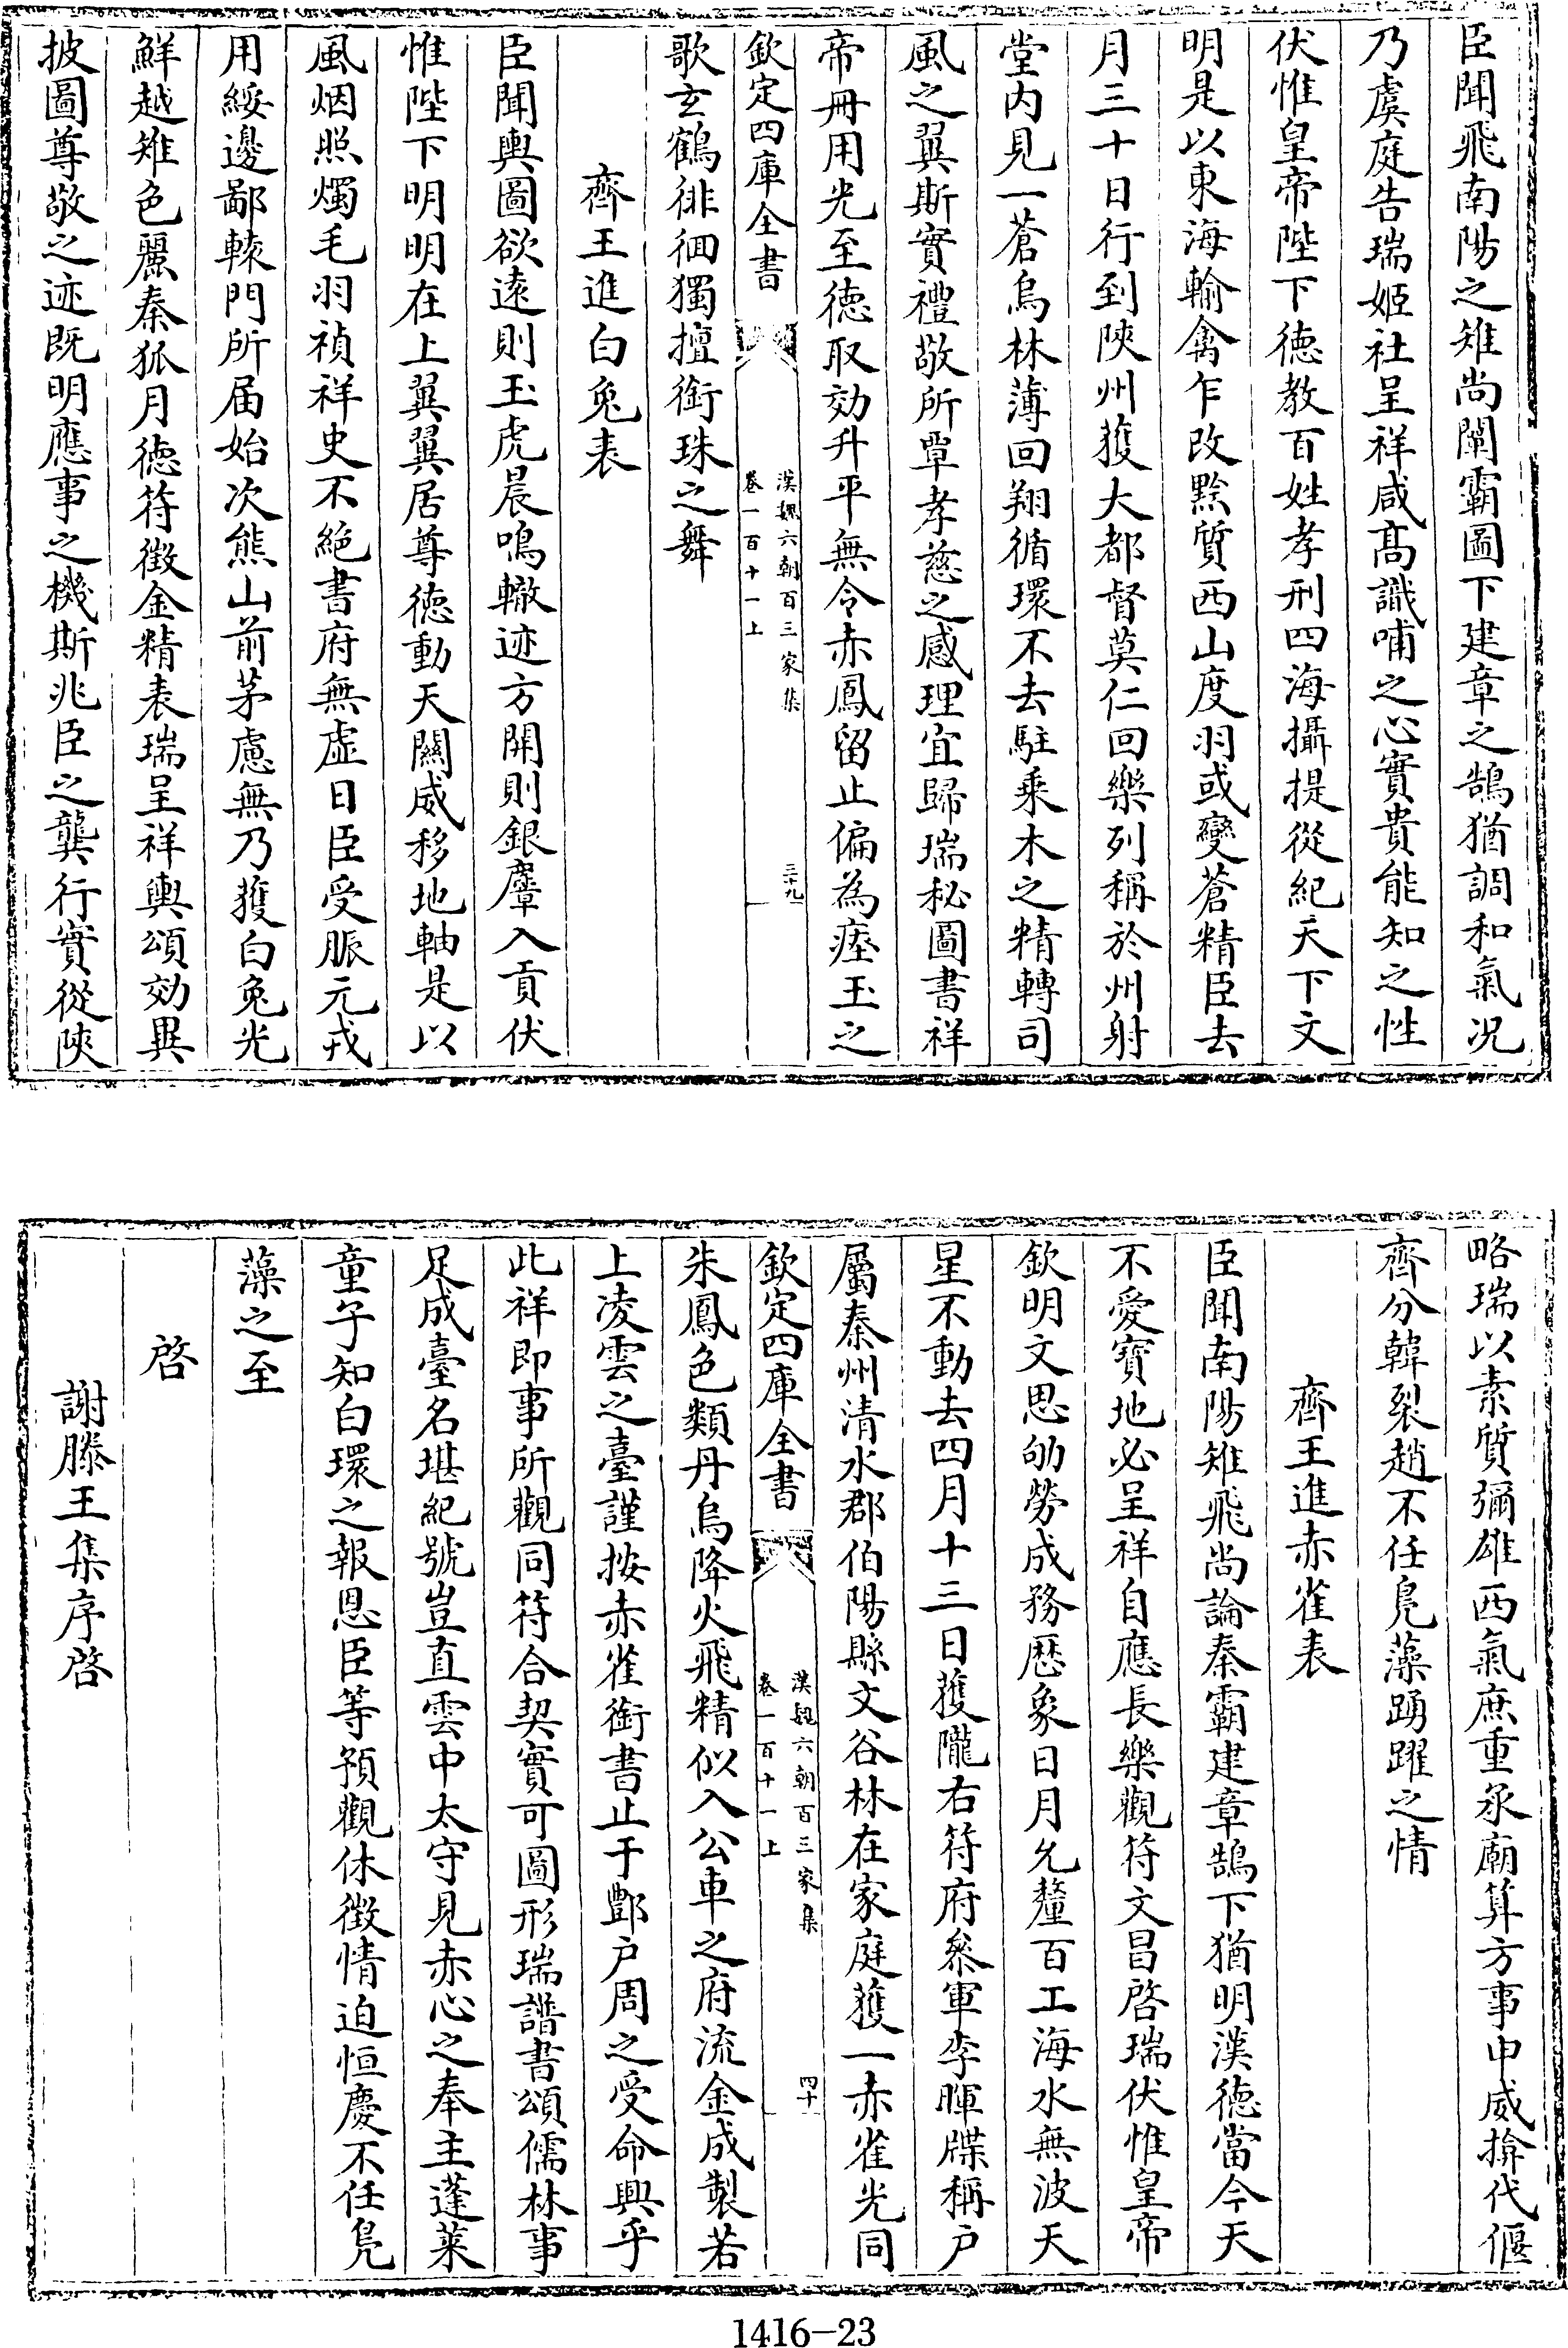 臣聞飛南陽之雉尚闡霸圖下建章之鵠猶調和氣况
乃虞庭告瑞姬社呈祥咸髙識哺之心實貴能知之性
伏惟皇帝陛下徳教百姓孝刑四海攝提從紀天下文
明是以東海輸禽乍改黔質西山度羽或變蒼精臣去
月三十日行到陜州獲大都督莫仁回樂列稱於州射
堂内見一蒼烏林薄回翔循環不去駐乘木之精轉司
風之翼斯實禮敬所覃孝慈之感理宜歸瑞秘圖書祥
帝冊用光至徳取効升平無令赤鳳留止偏為瘞玉之
欽定四庫全書
漢魏六朝百三家集
卷一百十一上
三十九
歌玄鶴徘徊獨擅銜珠之舞
齊王進白兔表
臣聞輿圖欲逺則玉虎晨鳴轍迹方開則銀麞入貢伏
惟陛下明明在上翼翼居尊徳動天闗威移地軸是以
風烟照燭毛羽禎祥史不絶書府無虚日臣受脤元戎
用綏邊鄙轅門所届始次熊山前茅慮無乃獲白兔光
鮮越雉色麗秦狐月徳符徴金精表瑞呈祥輿頌効異
披圖尊敬之迹既明應事之機斯兆臣之龔行實從陜
略瑞以素質彌雄西氣庶重承廟算方事申威揃代偃
齊分韓裂趙不任鳬藻踴躍之情
齊王進赤雀表
臣聞南陽雉飛尚論秦霸建章鵠下猶明漢徳當今天
不愛寶地必呈祥自應長樂觀符文昌啓瑞伏惟皇帝
欽明文思劬勞成務歴象日月允釐百工海水無波天
星不動去四月十三日獲隴右符府叅軍李暉牒稱户
屬秦州清水郡伯陽縣文谷林在家庭獲一赤雀光同
欽定四庫全書
漢魏六朝百三家集
卷一百十一上
四十
朱鳳色類丹烏降火飛精似入公車之府流金成製若
上凌雲之臺謹按赤雀銜書止于酆户周之受命興乎
此祥即事所觀同符合契實可圖形瑞譜書頌儒林事
足成臺名堪紀號豈直雲中太守見赤心之奉主蓬萊
童子知白環之報恩臣等預觀休徴情迫恒慶不任鳬
藻之至
啓
謝滕王集序啓
1416-23